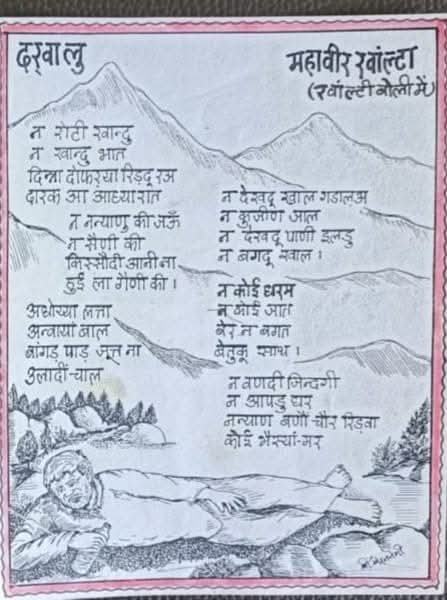 दरवालु
महावीर रवांल्टा
(रवांल्टी बोली में)
न रोटी खान्दु
न खान्दु भात
दिन्ना दोफरया रिड़दू रअ
दारक आ आध्या रात
न नन्याणु की जऊँ
न सैणी की
किस्सौदी आनी ना
हुई ला गैणी की।
अधोच्या लत्ता
अन्वायो बाल
बांगड़ पाड़ जूत ना
उलादीं चाल
न देखदू खाल गडालअ
न कुजीण आल
न देखदू पाणी इलडु
न बगदू खाल।
न कोई धरम
न कोई जात
बेर न बगत
बेतुकू साथ।
न वणदी जिन्दगी
न आपडु घर
नन्याण बणौं चौर रिड़वा
कोई भैस्यां मर